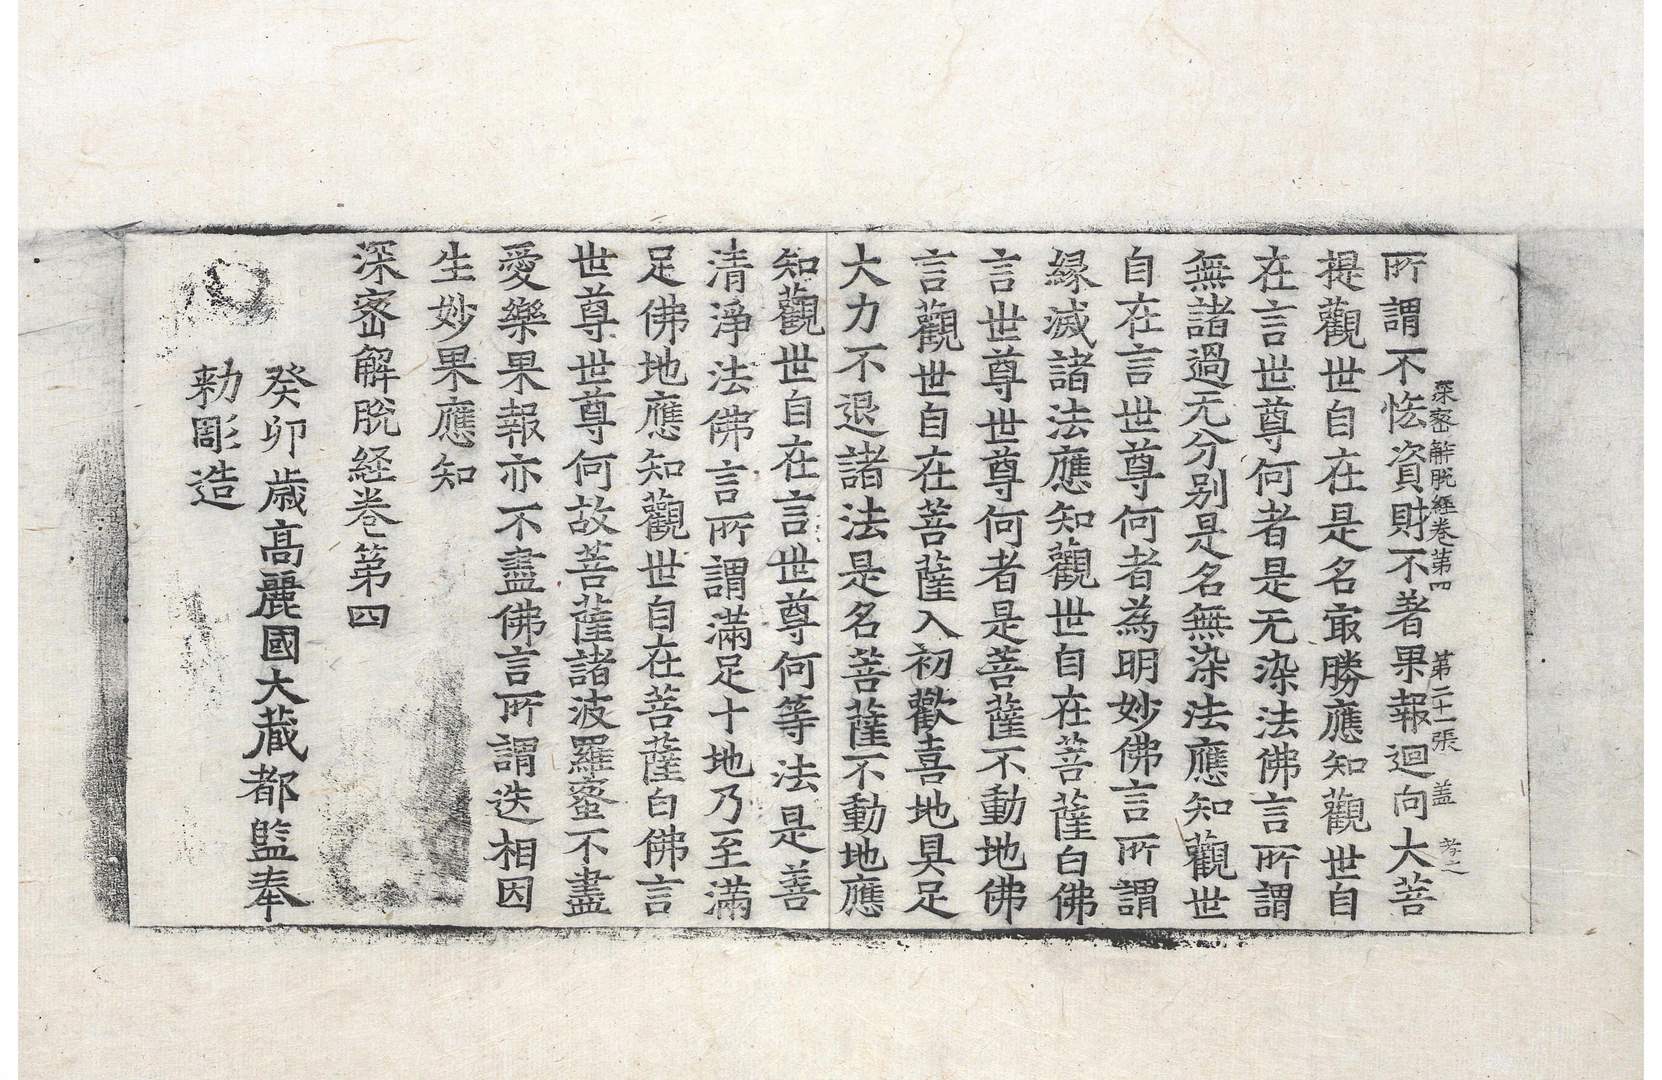 深密解脫經卷第四 第二十一張 盖
所謂不悋資財不著果報迴向大菩
提觀世自在是名㝡勝應知觀世自
在言世尊何者是无染法佛言所謂
無諸過无分別是名無染法應知觀世
自在言世尊何者為明妙佛言所謂
緣滅諸法應知觀世自在菩薩白佛
言世尊世尊何者是菩薩不動地佛
言觀世自在菩薩入初歡喜地具足
大力不退諸法是名菩薩不動地應
知觀世自在言世尊何等法是善
清淨法佛言所謂滿足十地乃至滿
足佛地應知觀世自在菩薩白佛言
世尊世尊何故菩薩諸波羅蜜不盡
愛樂果報亦不盡佛言所謂迭相因
生妙果應知
深密解脫経卷第四
癸卯歲高麗國大藏都監奉
勅彫造